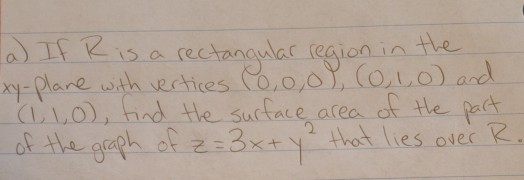 a) If R is a rectangular region in the
xy-plane with vertices (0,0,0), (0,1,0) and
(1,1,0), find the surface area of the part
of the graph of z=3x+y² that lies over R.